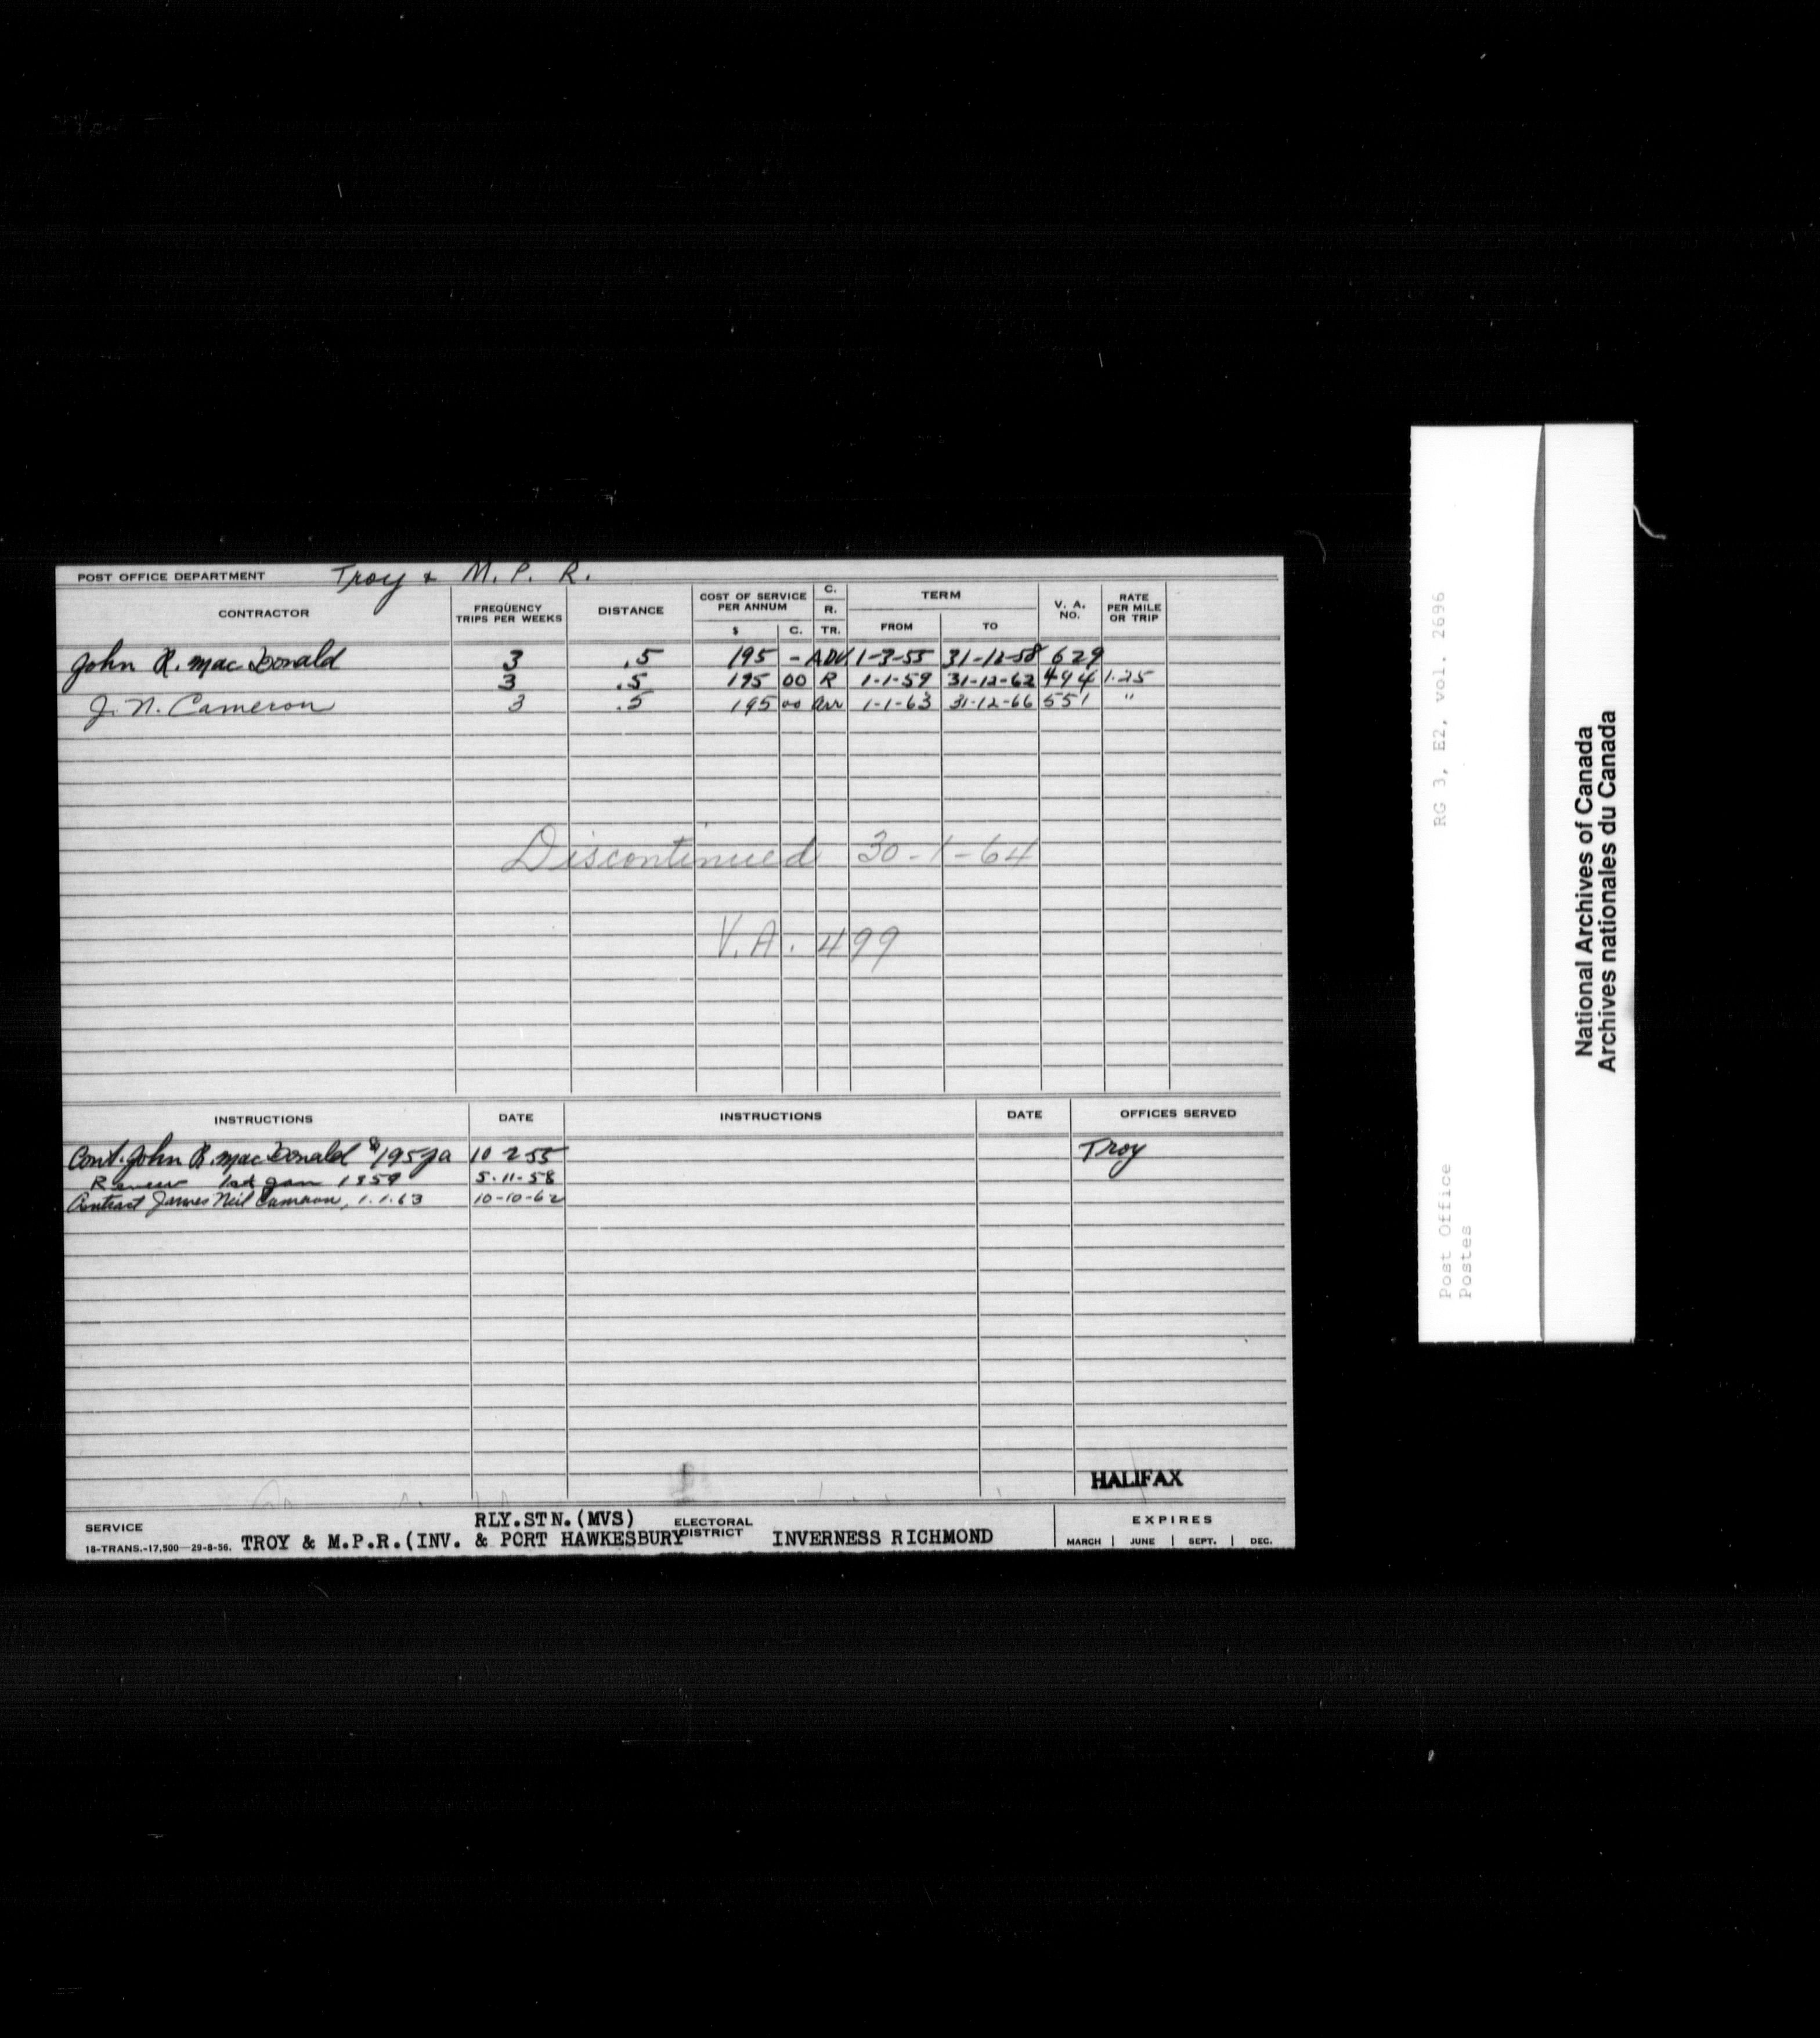 POST OFFICE DEPARTMENT Troy & M. P. R.
CONTRACTOR FREQUENCY TRIPS PER WEEKS DISTANCE COST OF SERVICE PER ANNUM $ C. C. R. TR. TERM FROM TO V. A. NO. RATE PER MILE OR TRIP
John R. MacDonald 3 .5 195 - ADV. 1-3-55 31-12-58 629
3 .5 195 00 R 1-1-59 31-12-62 494 1.25
J. N. Cameron 3 .5 195 00 arr 1-1-63 31-12-66 551 "
Discontinued 30-1-64
V.A. 499
INSTRUCTIONS DATE INSTRUCTIONS DATE OFFICES SERVED
Cont. John R. MacDonald $195 pa 10 2 55 Troy
Renew 1st Jan 1959 5-11-58
Contract James Neil Cameron, 1.1.63 10-10-62
HALIFAX
SERVICE TROY & M.P.R.(INV. & PORT HAWKESBURY RLY.STN.(MVS) ELECTORAL DISTRICT INVERNESS RICHMOND EXPIRES
18-TRANS.-17,500—29-8-56. MARCH | JUNE | SEPT. | DEC.
RG 3, E2, vol. 2696
Post Office
Postes
National Archives of Canada
Archives nationales du Canada